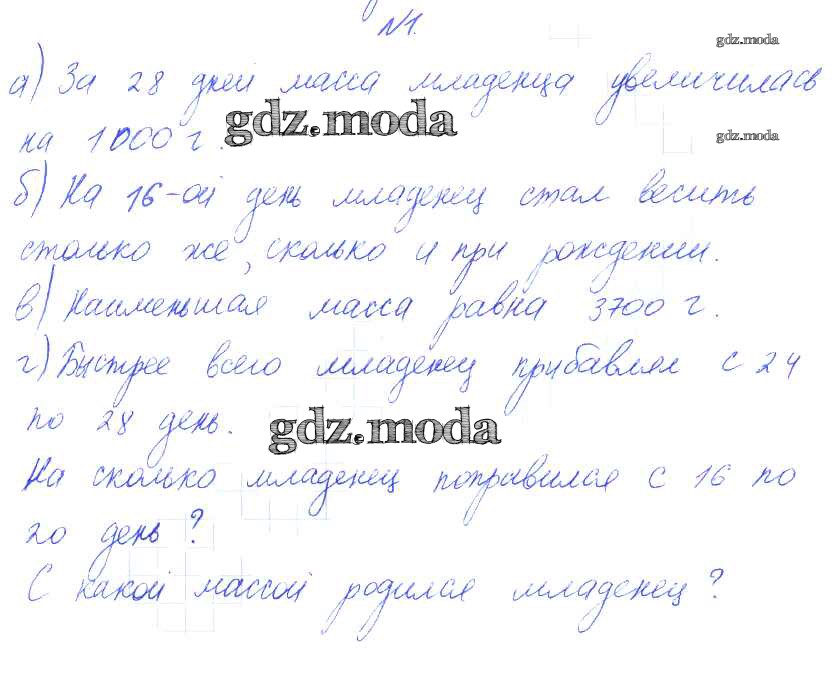 №1.
gdz.moda
а) За 28 дней масса младенца увеличилась
gdz.moda
gdz.moda
на 1000 г.
б) На 16-ой день младенец стал весить
столько же, сколько и при рождении.
в) Наименьшая масса равна 3700 г.
г) Быстрее всего младенец прибавлял с 24
по 28 день.
gdz.moda
На сколько младенец поправился с 16 по
20 день?
С какой массой родился младенец?